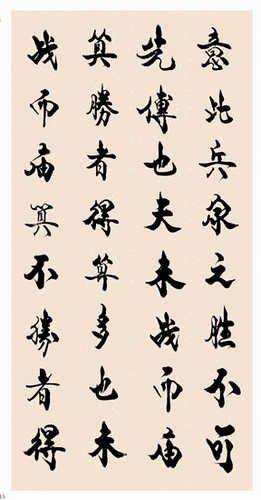 意此兵家之胜不可
先傳也夫未战而庙
算勝者得算多也未
战而庙算不勝者得